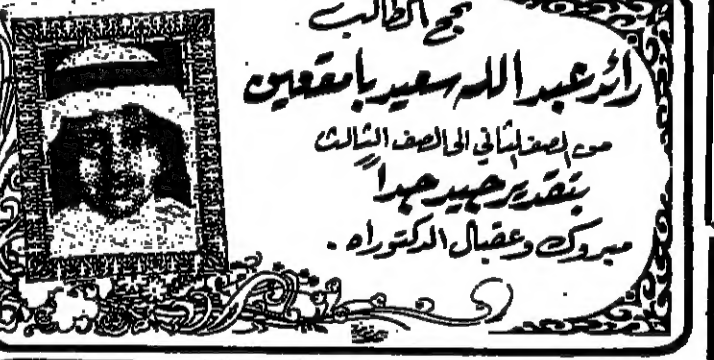 نجح الطالب
رائد عبدالله سعيد بامقعين
من الصف الثاني الى الصف الثالث
بتقدير جيد جداً
مبروك وعقبال الدكتوراه .